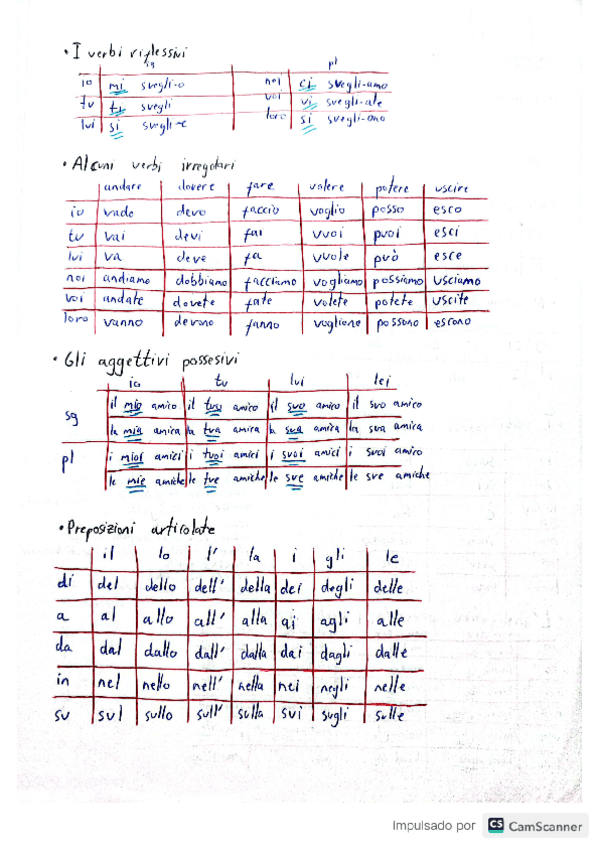 • I verbi riflessivi
sg pl
io mi svegli-o noi ci svegli-amo
tu ti svegli voi vi svegli-ate
lui si svegli-e loro si svegli-ono
• Alcuni verbi irregolari
andare dovere fare volere potere uscire
io vado devo faccio voglio posso esco
tu vai devi fai vuoi puoi esci
lui va deve fa vuole può esce
noi andiamo dobbiamo facciamo vogliamo possiamo usciamo
voi andate dovete fate volete potete uscite
loro vanno devono fanno vogliono possono escono
• Gli aggettivi possesivi
io tu lui lei
sg il mio amico il tuo amico il suo amico il suo amico
la mia amica la tua amica la sua amica la sua amica
pl i miei amici i tuoi amici i suoi amici i suoi amico
le mie amiche le tue amiche le sue amiche le sue amiche
• Preposizioni articolate
il lo l' la i gli le
di del dello dell' della dei degli delle
a al allo all' alla ai agli alle
da dal dallo dall' dalla dai dagli dalle
in nel nello nell' nella nei negli nelle
su sul sullo sull' sulla sui sugli sulle
Impulsado por CS CamScanner